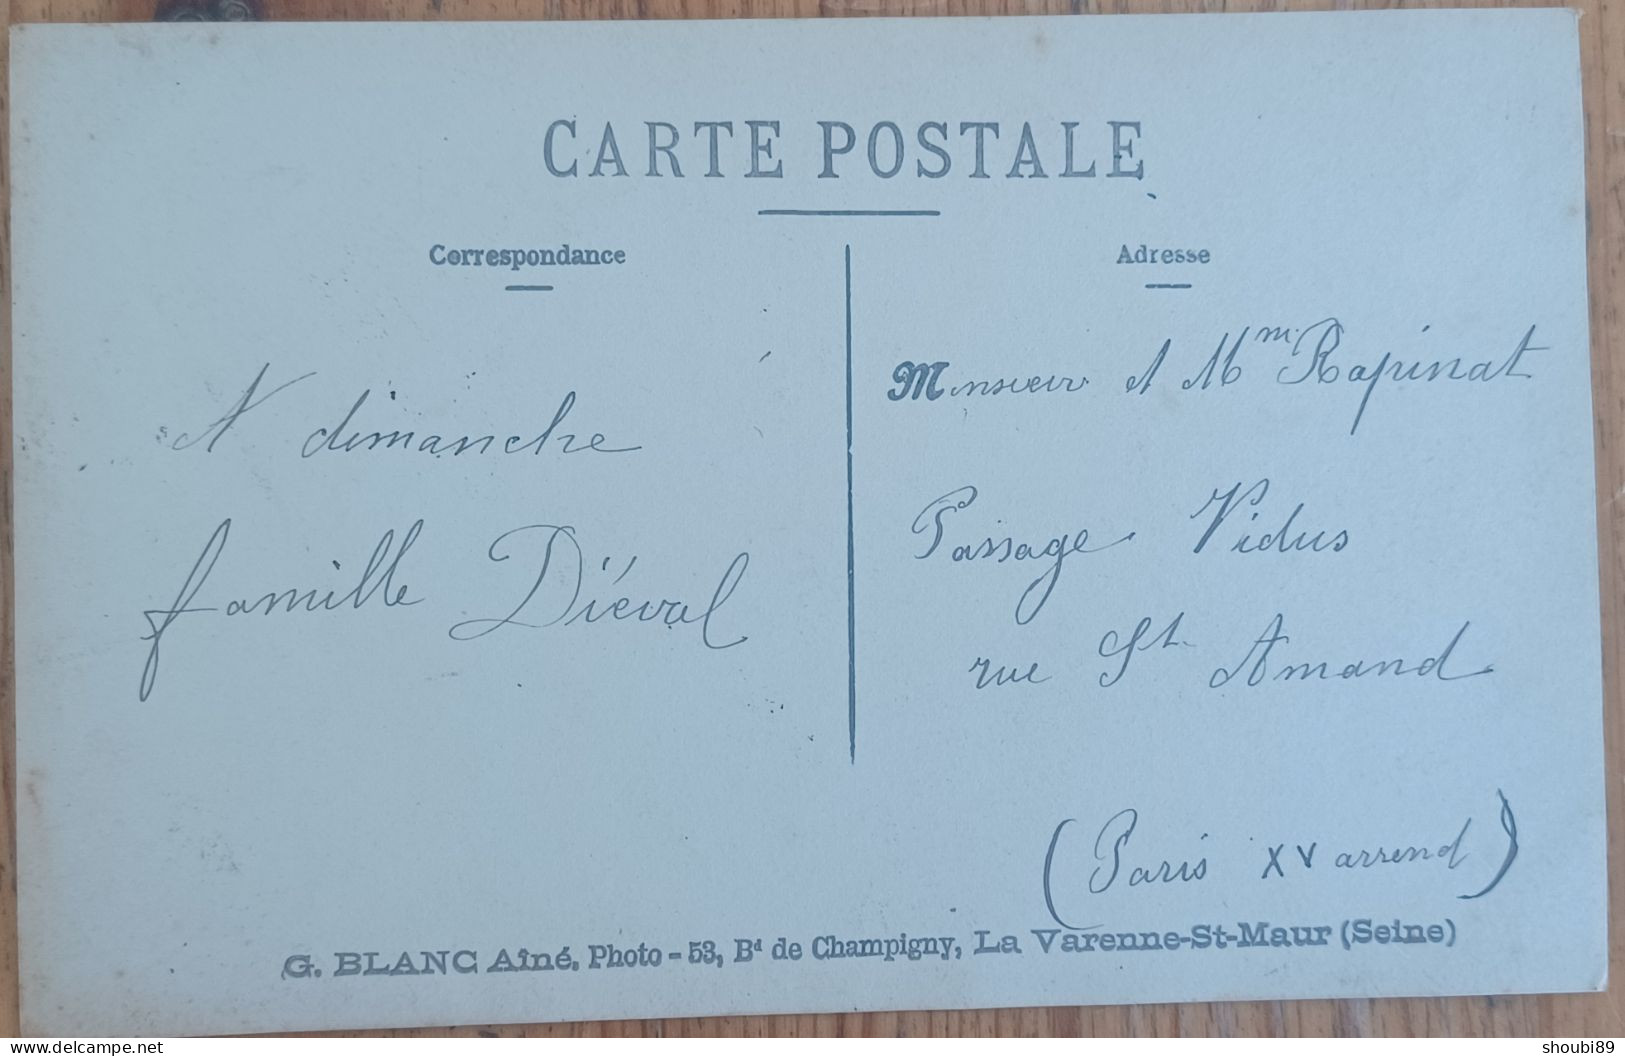 CARTE POSTALE
Correspondance
A dimanche
famille Diéval
Adresse
Monsieur et Mm Rapinat
Passage Vidus
rue St Amand
(Paris XV arrend)
G. BLANC Aîné, Photo - 53, Bd de Champigny, La Varenne-St-Maur (Seine)
delcampe.net
shoubi89